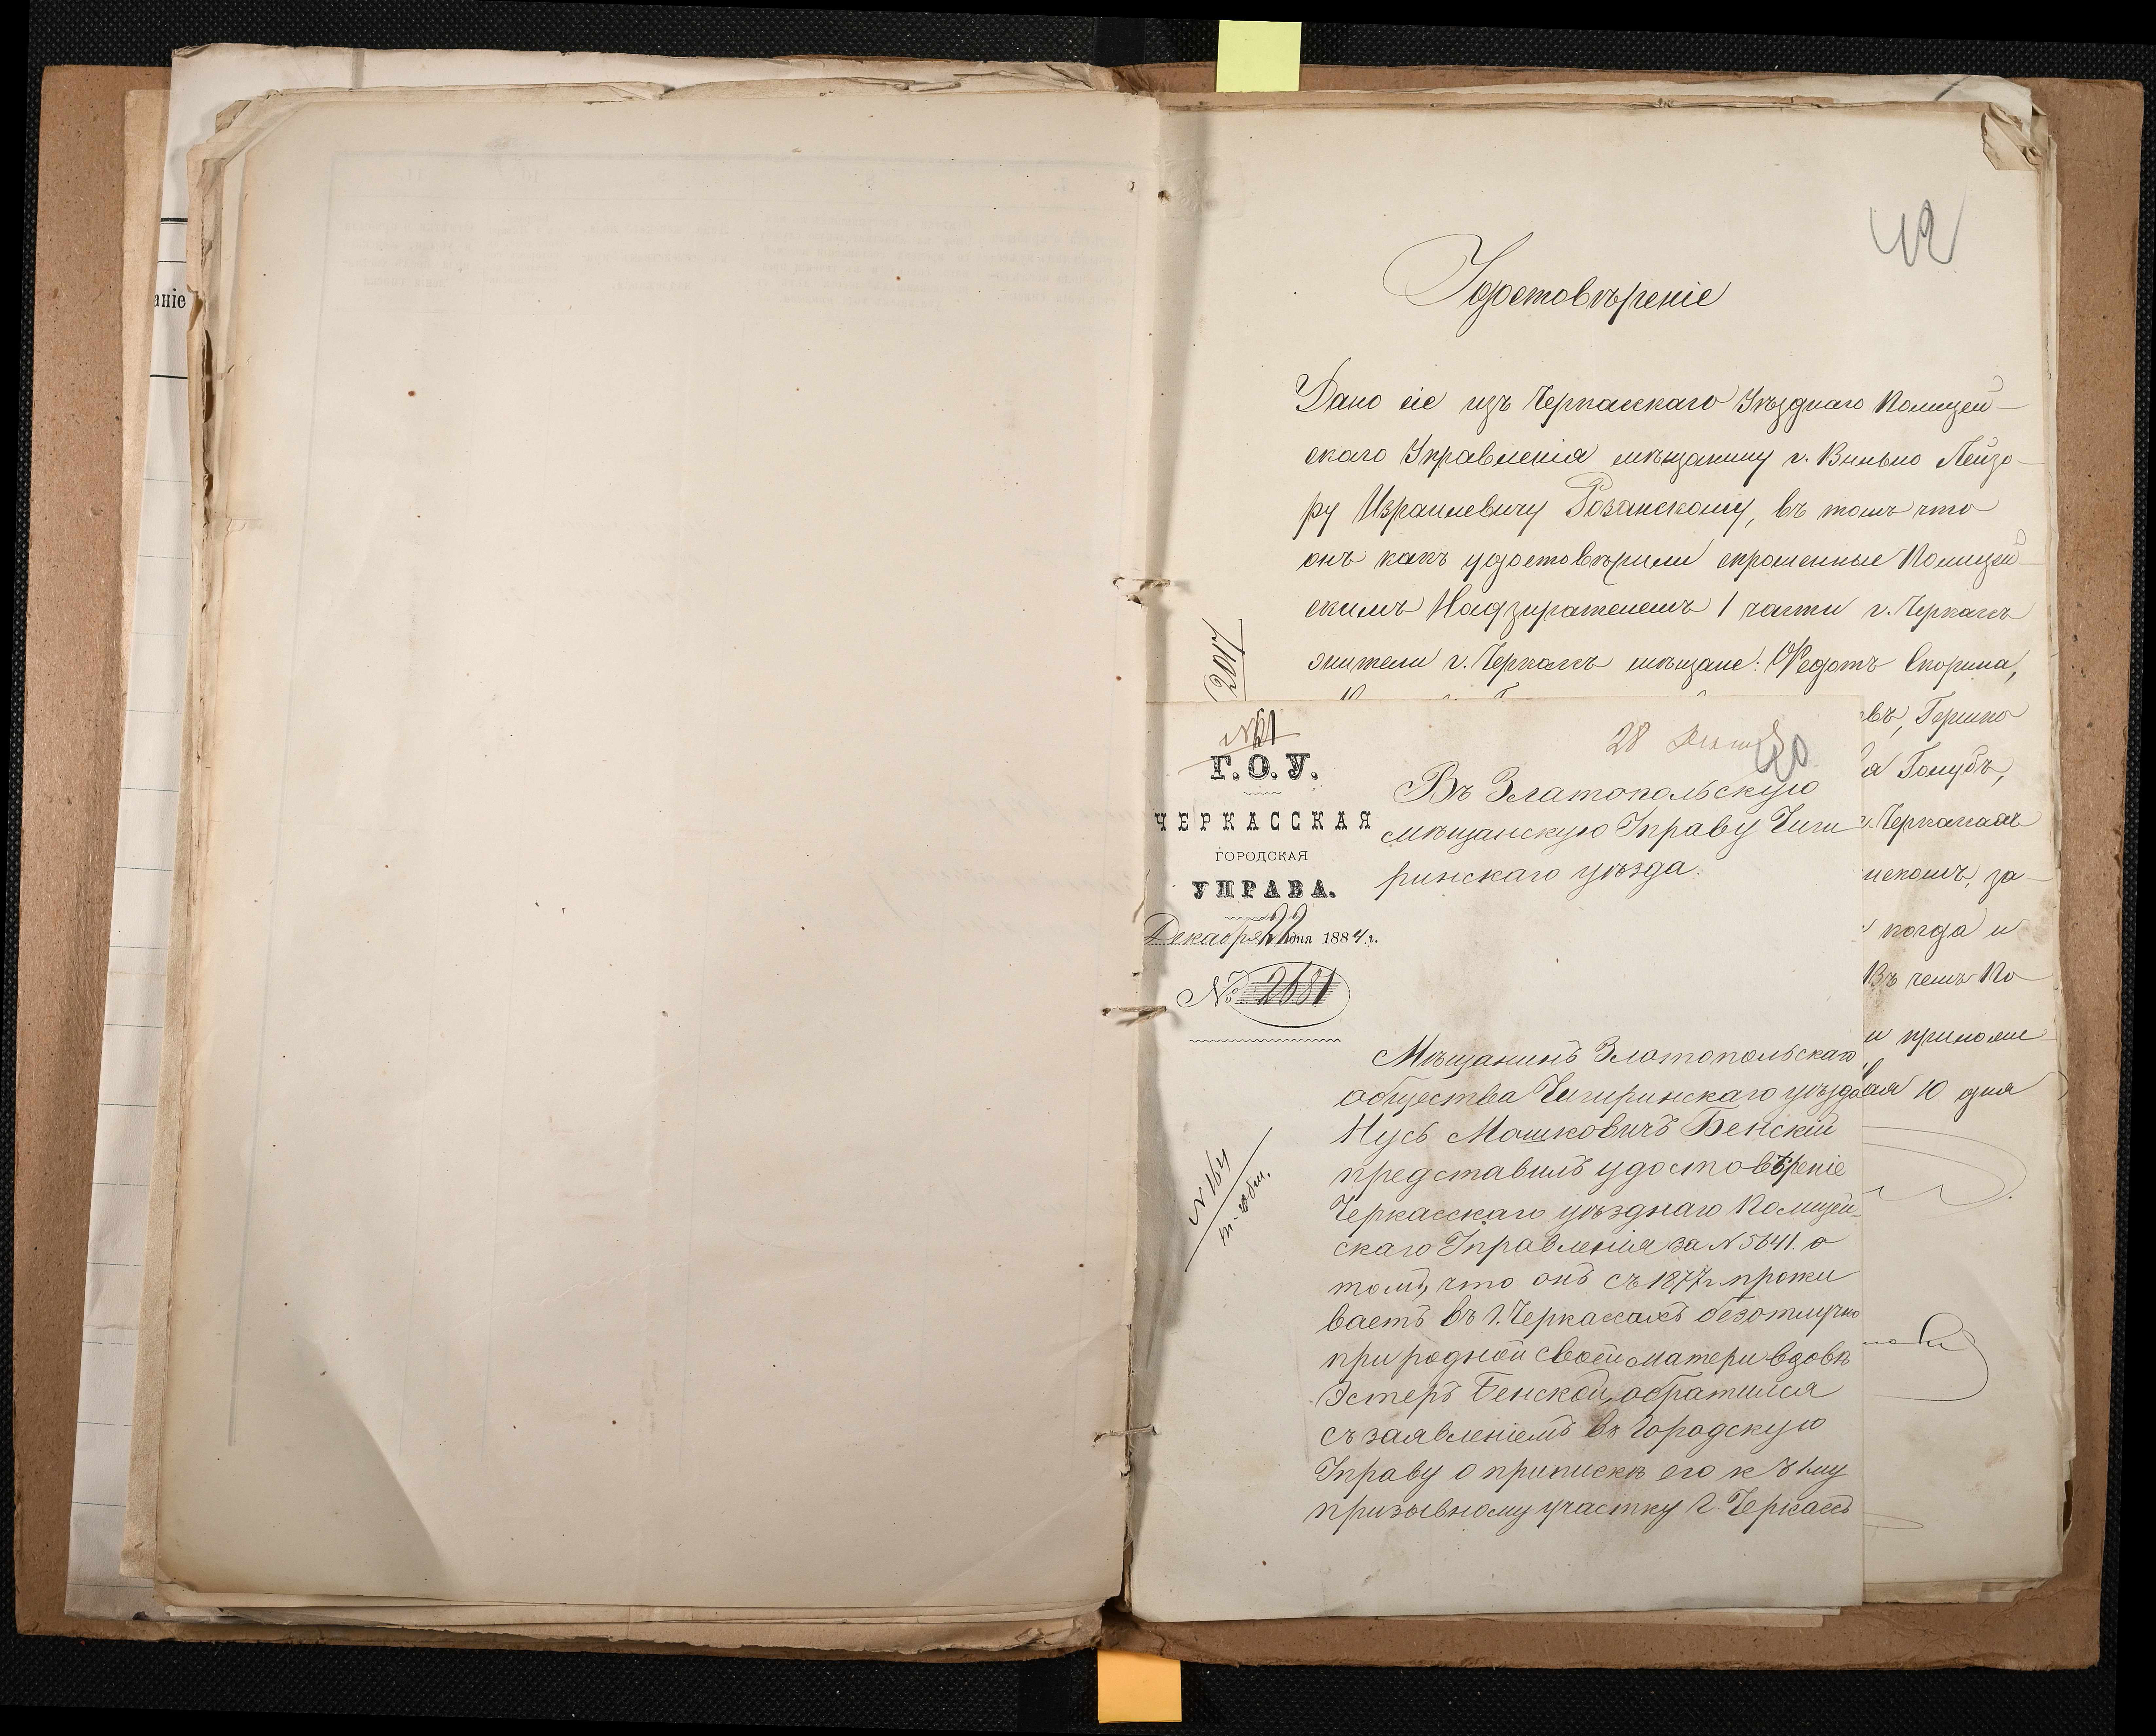 аніе
42
Удостовѣреніе
Дано сіе изъ Черкасскаго Уѣзднаго Полицей-
скаго Управленія мѣщанину г. Вильно Лейзо-
ру Израилевичу Розанскому, въ томъ что
онъ какъ удостовѣрили спрошенные Полицей-
скимъ Надзирателемъ 1 части г. Черкасъ
жители г. Черкасъ мѣщане: Ѳедотъ Скорина,
2017
въ, Гершко
я Голубъ,
г. Черкасахъ
нскомъ, за-
когда и
Въ чемъ По-
и приложе-
ая 10 дня
№ 61
Г. О. У.
ЧЕРКАССКАЯ
ГОРОДСКАЯ
УПРАВА.
Декабря 22 дня 1884 г.
№ 2681
28
40
Въ Златопольскую
мѣщанскую Управу Чиги
ринскаго уѣзда.
Мѣщанинъ Златопольскаго
общества Чигиринскаго уѣзда
Нусь Мошковичъ Бенскій
представилъ удостовѣреніе
Черкасскаго уѣзднаго Полицей-
скаго Управленія за № 5641. о
томъ, что онъ съ 1877 г. прожи
ваетъ въ г. Черкасахъ безотлучно
при родной своей матери вдовѣ
Эстеръ Бенской, обратился
съ заявленіемъ въ Городскую
Управу о припискѣ его къ 1му
призывному участку г. Черкасъ
№ 164